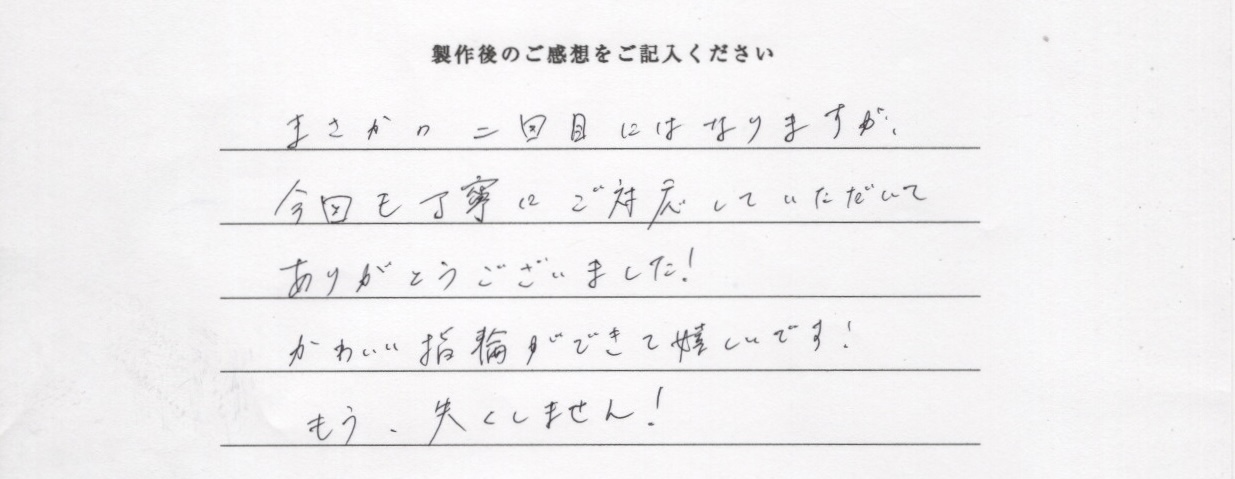 製作後のご感想をご記入ください
まさかの二回目にはなりますが、
今回も丁寧にご対応していただいて
ありがとうございました!
かわいい指輪ができて嬉しいです!
もう、失くしません!